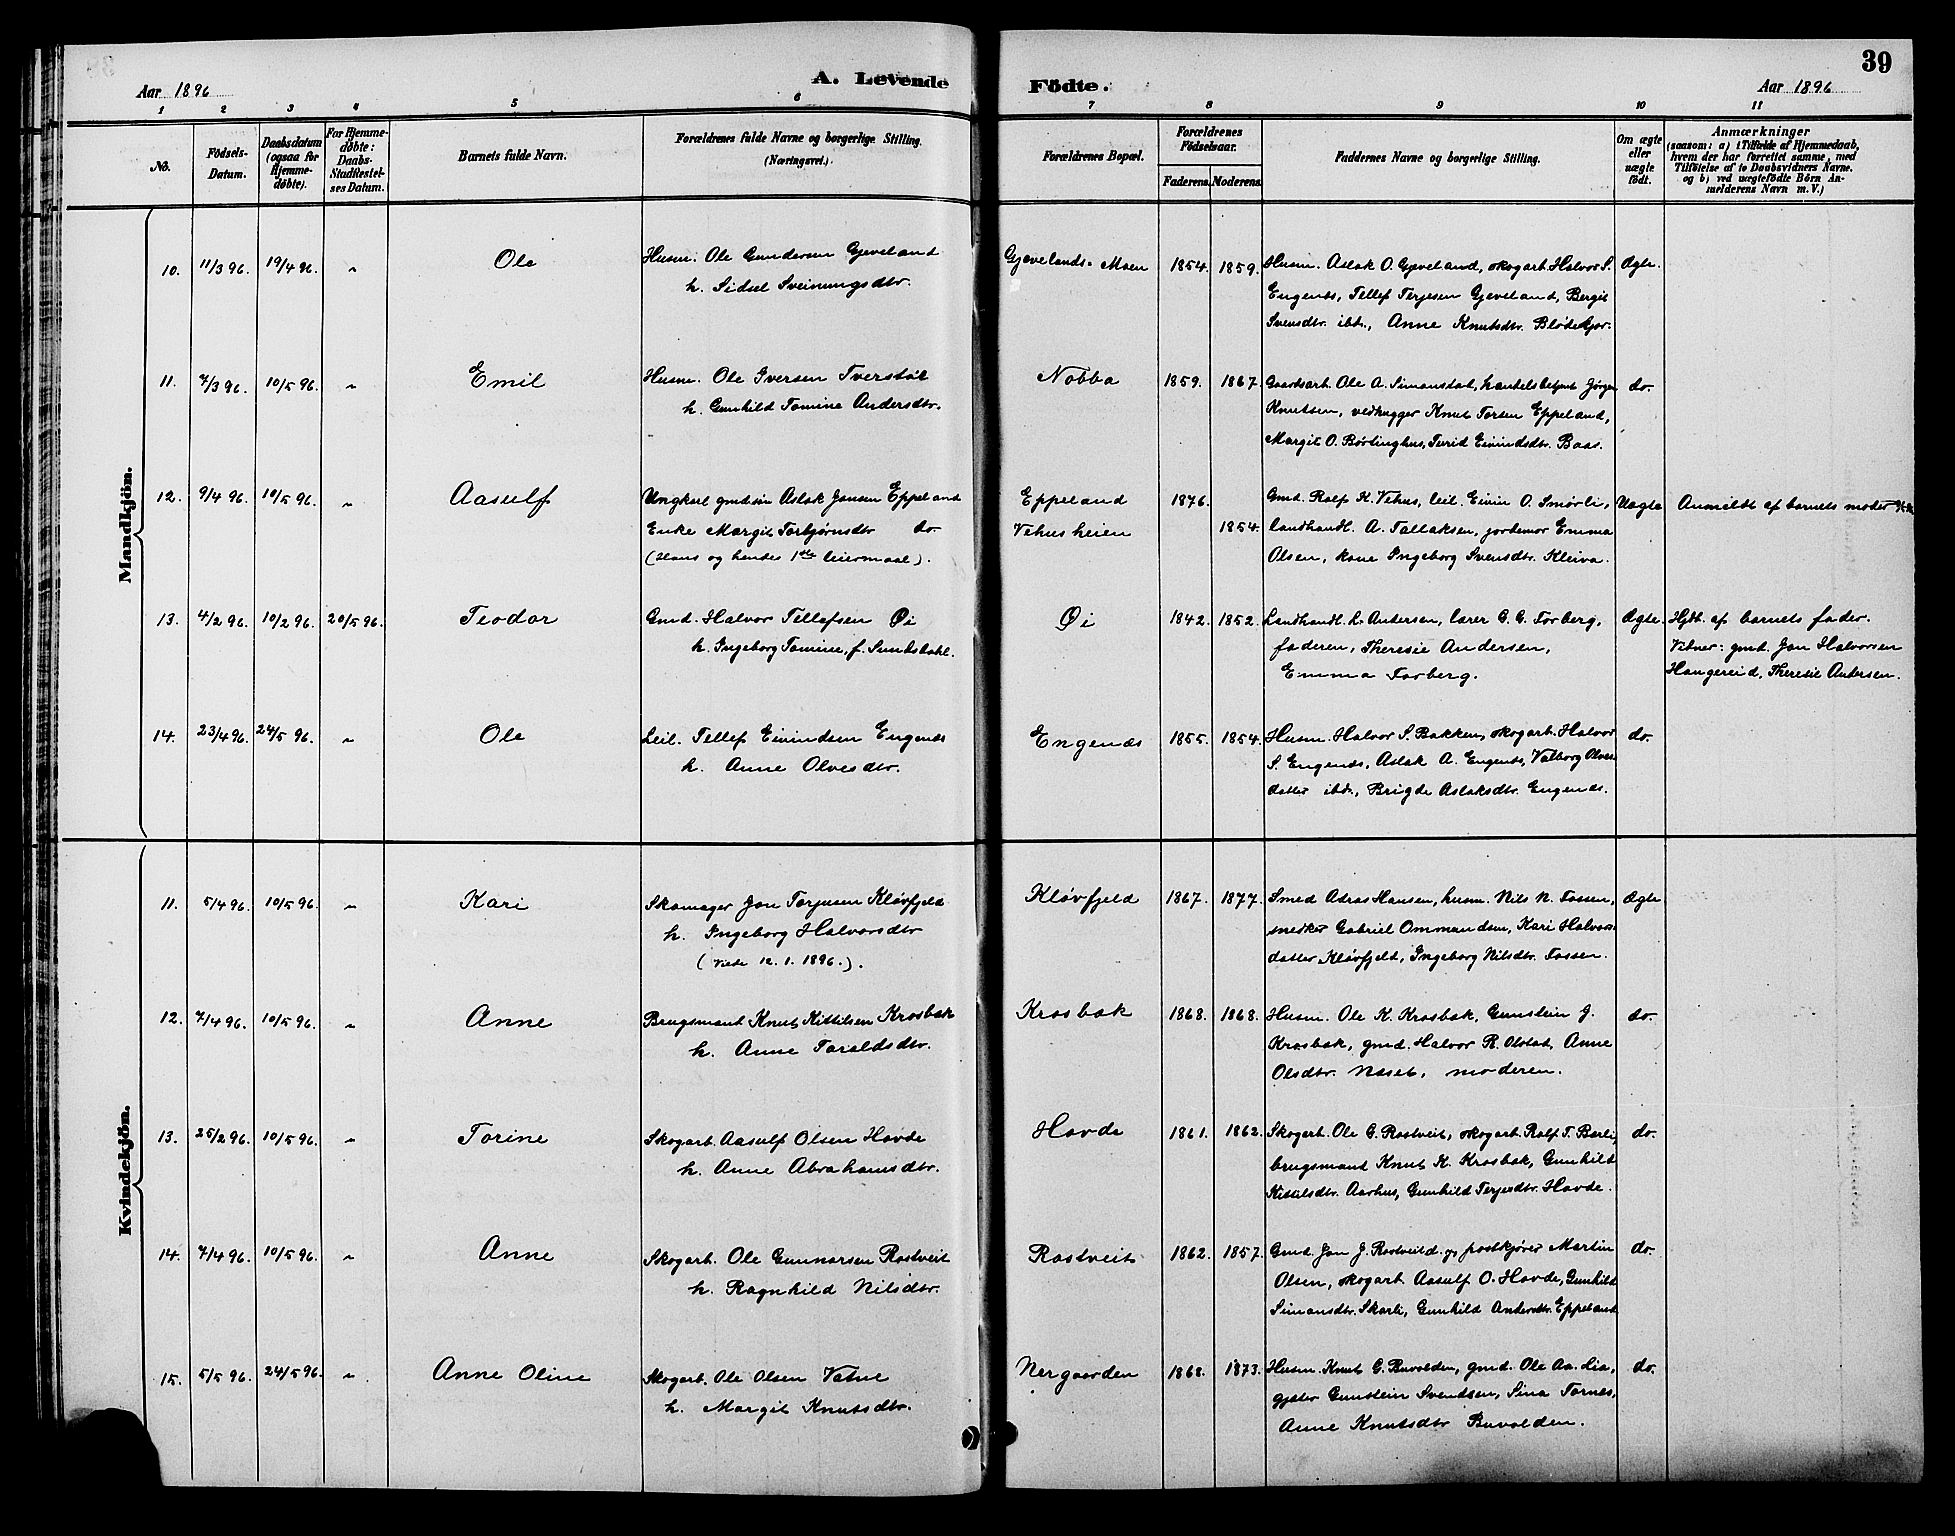 39
Aar 1896
A. Levende
Födte.
Aar 1896
1 2 3 4 5 6 7 8 9 10 11
No.
Födsels-
Datum.
Daabsdatum
(ogsaa for
Hjemme-
døbte).
For Hjemme-
døbte:
Daabs-
Stadfestel-
ses Datum.
Barnets fulde Navn.
Forældrenes fulde Navne og borgerlige Stilling.
(Næringsvei.)
Forældrenes Bopæl.
Forældrenes
Födselsaar.
Faderens. Moderens.
Faddernes Navne og borgerlige Stilling.
Om ægte
eller
uægte
født.
Anmærkninger
(saasom: a) i Tilfælde af Hjemmedaab,
hvem der har forrettet samme, med
Tilföielse af to Daabsvidners Navne.
og b) ved uægtefödte Börn An-
melderens Navn m. V.)
Mandkjön.
10. 11/3 96. 19/4 96. " Ole Husm. Ole Gundersen Gjeveland Gjevelands-Moen 1854. 1859. Husm. Aslak O. Gjeveland, skogarb. Halvor S. Ægte.
h. Sidsel Sveinungsdtr. Engenes, Tellef Terjesen Gjeveland, Bergit
Svensdtr. ibd., Anne Knutsdtr. Blødekjær.
11. 7/3 96. 10/5 96. " Emil Husm. Ole Iversen Tverstøl Nobba 1859. 1867. Gaardsarb. Ole A. Simonstad, handelsbetjent Jørgen do.
h. Gunhild Tomine Andersdtr. Knutsen, vedhugger Knut Torsen Eppeland,
Margit O. Børlinghus, Turid Eivindsdtr. Baas.
12. 9/4 96. 10/5 96. " Aasulf Ungkarl gmdsøn Aslak Jonsen Eppeland Eppeland 1876. Gmd. Rolf K. Vehus, leil. Eivin O. Smørli, Uægte Anmeldt af barnets moder
Enke Margit Torbjørnsdtr do Vehusheien 1854. landhandl. A. Tallaksen, jordemor Emma
(Hans og hendes 1ste leiermaal). Olsen, kone Ingeborg Svensdtr. Kleiva.
13. 4/2 96. 10/2 96. 20/5 96. Teodor Gmd. Halvor Tellefsen Øi Øi 1842. 1852. Landhandl. L. Andersen, lærer G. G. Forberg, Ægte. Hjdb. af barnets fader.
h. Ingeborg Tomine, f. Sundsdahl. faderen, Theresie Andersen, Vidner: gmd. Jon Halvorsen
Emma Forberg. Haugereid, Theresie Andersen.
14. 23/4 96. 24/5 96. " Ole Leil. Tellef Eivindsen Engenes Engenes 1855. 1854. Husm. Halvor S. Bakken, skogarb. Halvor do.
h. Anne Olvesdtr. S. Engenes, Aslak A. Engenes, Valborg Olves-
datter ibd., Brigde Aslaksdtr. Engenes.
Kvindekjön.
11. 5/4 96. 10/5 96. " Kari Skomager Jon Torjusen Kløvfjeld Kløvfjeld 1867. 1877. Smed Adras Hansen, husm. Nils N. Fossen, Ægte
h. Ingeborg Halvorsdtr snedker Gabriel Ommundsen, Kari Halvors-
(Viede 12. 1. 1896.). datter Kløvfjeld, Ingeborg Nilsdtr. Fossen.
12. 7/4 96. 10/5 96. " Anne Brugsmand Knut Kittilsen Krosbak Krosbak 1868. 1868. Husm. Ole K. Krosbak, Gunstein J. do.
h. Anne Taraldsdtr. Krosbak, gmd. Halvor R. Olstad, Anne
Olsdtr. Næset, moderen.
13. 25/2 96. 10/5 96. " Torine Skogarb. Aasulf Olsen Hovde Hovde 1861. 1862. Skogarb. Ole G. Rostveit, skogarb. Rolf T. Berli, do.
h. Anne Abrahamsdtr. brugsmand Knut K. Krosbak, Gunhild
Kittilsdtr. Aarhus, Gunhild Terjesdtr. Hovde.
14. 7/4 96. 10/5 96. " Anne Skogarb. Ole Gunnarsen Rostveit Rostveit 1862. 1857. Gmd. Jon J. Rostveit d. y. postkjører Martin do.
h. Ragnhild Nilsdtr. Olsen, skogarb. Aasulf O. Hovde, Gunhild
Simonsdtr. Skarli, Gunhild Andersdtr. Eppeland
15. 5/5 96. 24/5 96. " Anne Oline Skogarb. Ole Olsen Vatne Nergaarden 1868. 1873. Husm. Knut G. Buvolden, gmd. Ole Aa. Lia, do.
h. Margit Knutsdtr. gjæter Gunstein Svendsen, Sina Tornes,
Anne Knutsdtr Buvolden.